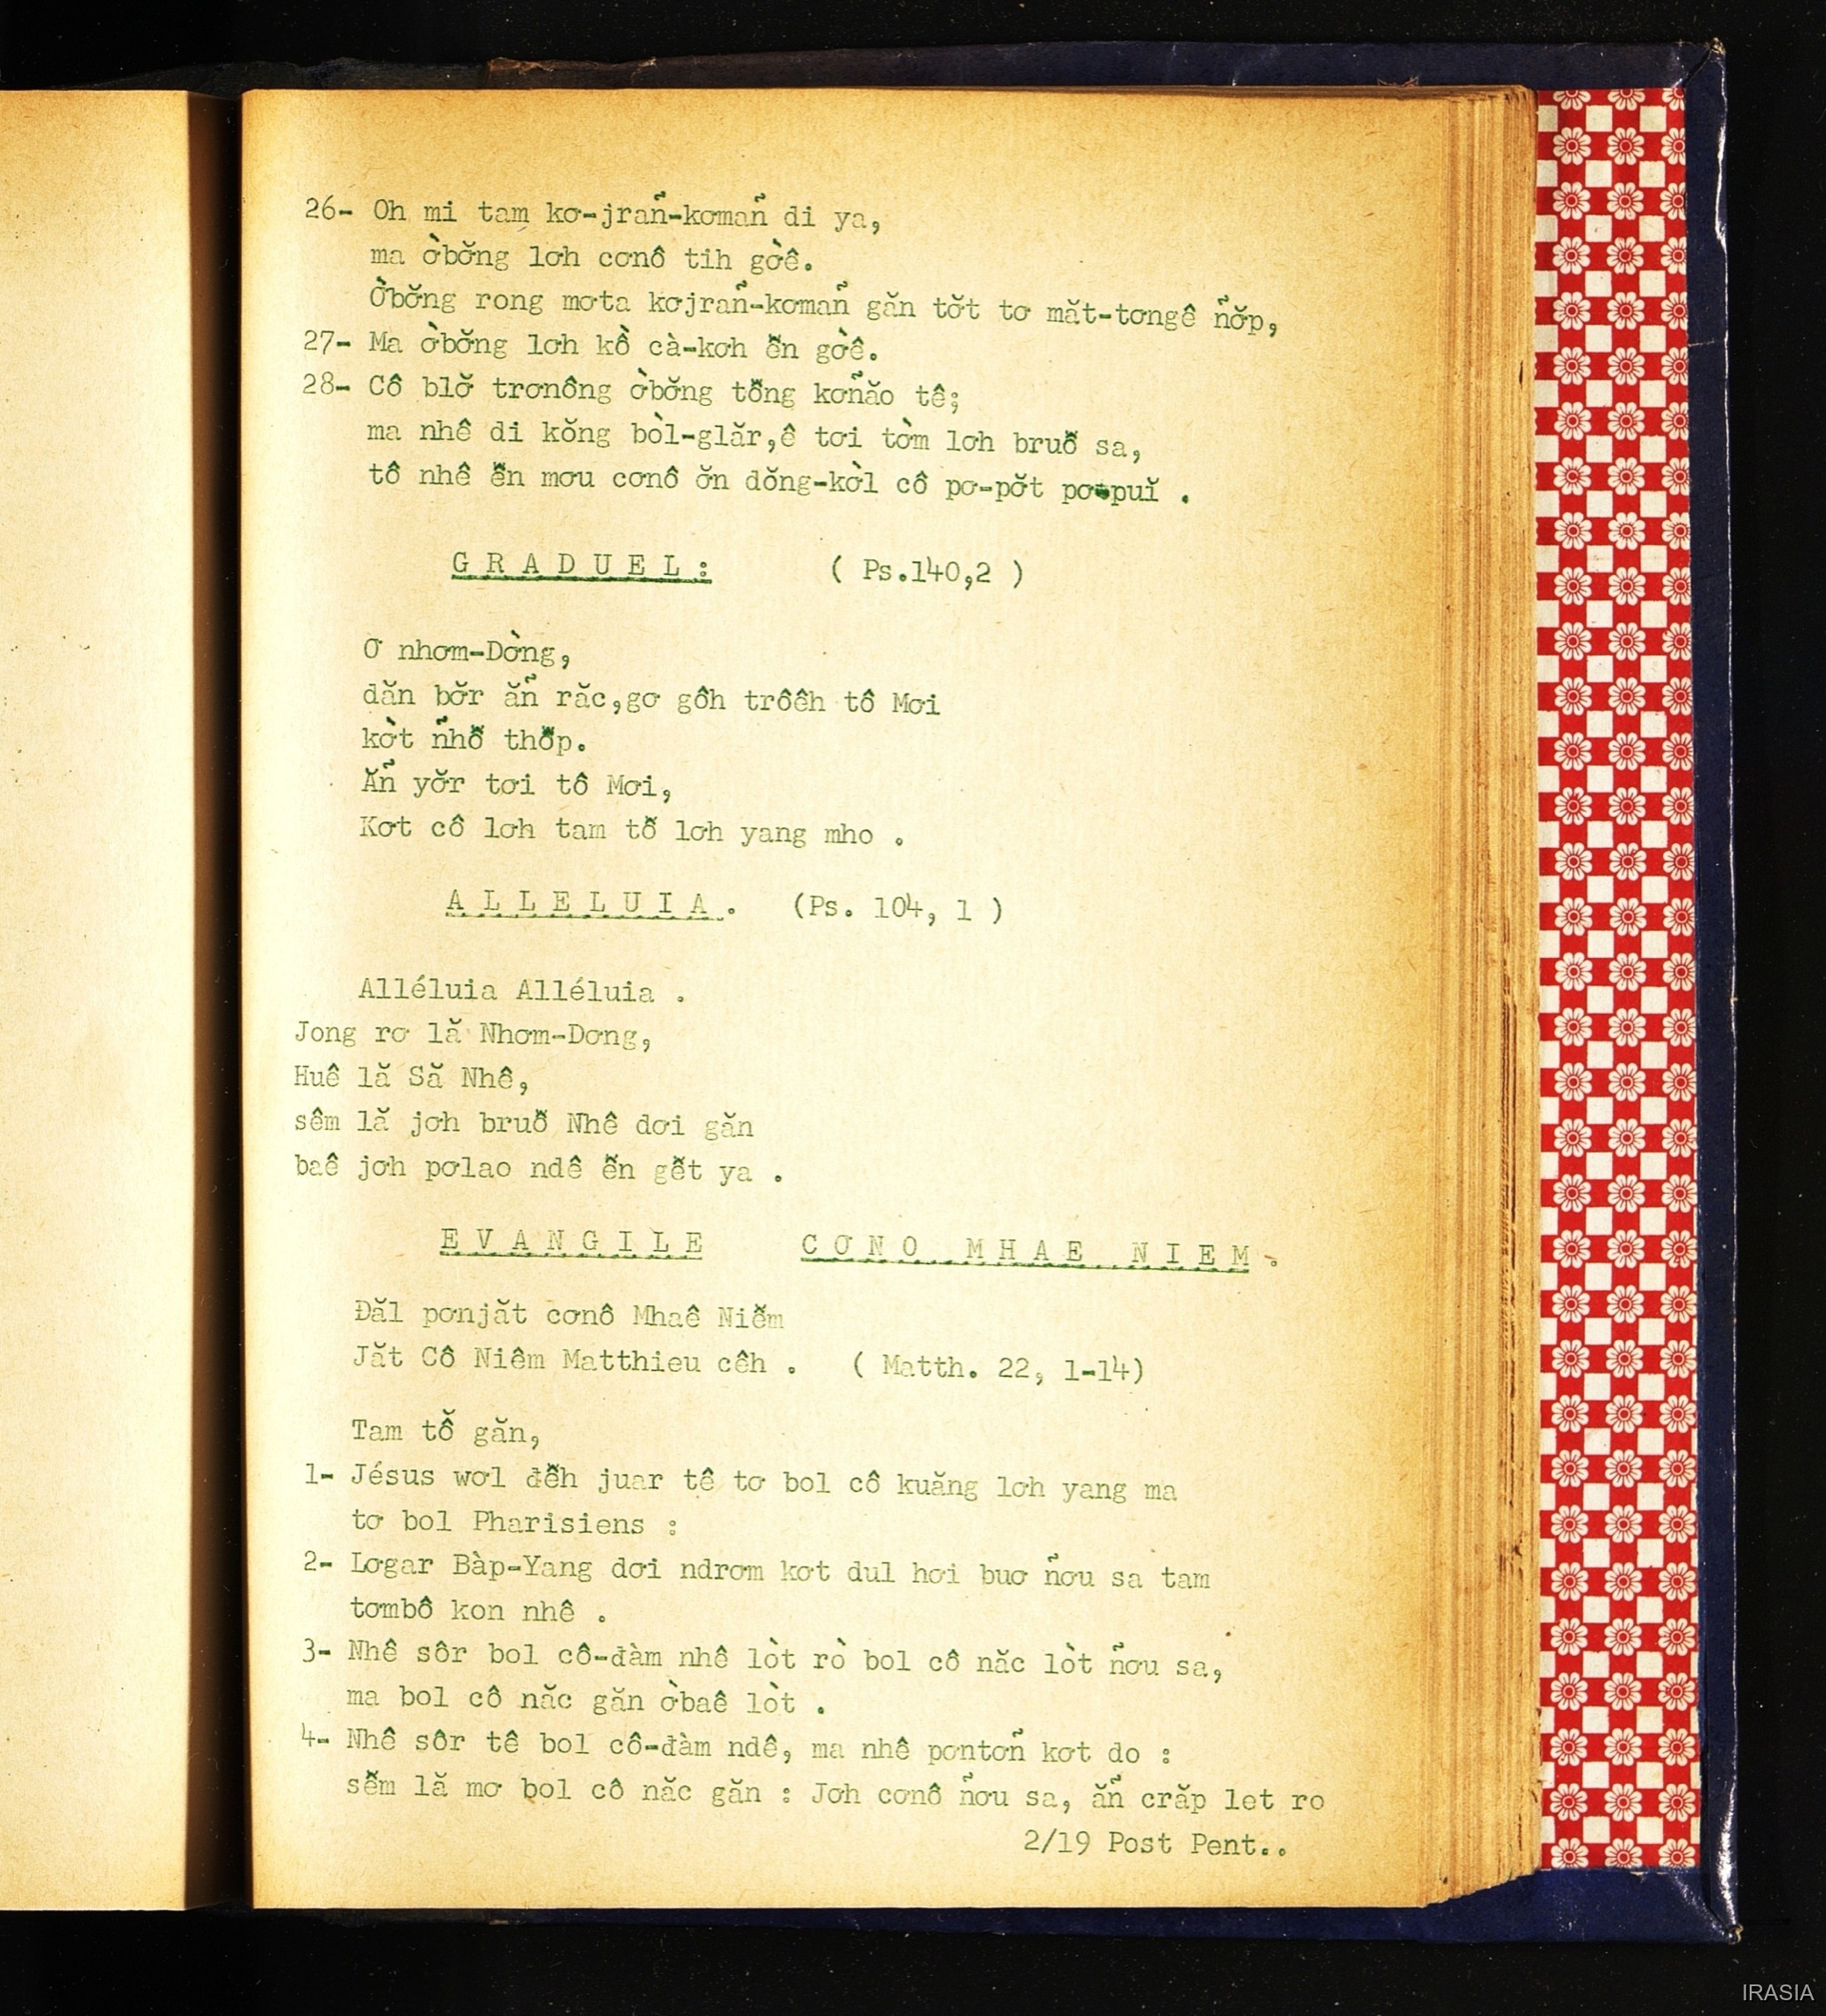 26- Oh mi tam kơ-jrañ-kơmañ di ya,
ma ờbơ̆ng lơh cơnô tih gờê.
Ờbơ̆ng rong mơta kơjrañ-kơmañ găn tơ̆t tơ măt-tơngê ñơ̆p,
27- Ma ờbơ̆ng lơh kồ cà-kơh ê̆n gờê.
28- Cô blơ̆ trơnông ờbơ̆ng tô̆ng kơñăo tê;
ma nhê di kŏng bòl-glăr,ê tơi tờm lơh bruô̆ sa,
tô nhê ê̆n mơu cơnô ơ̆n dŏng-kờl cô pơ-pơ̆t pơ-puĭ .
G R A D U E L : ( Ps.140,2 )
Ơ nhơm-Dờng,
dăn bơ̆r ăñ răc,gơ gôh trôêh tô Mơi
kờt ñhô̆ thô̆p.
Ăñ yơ̆r tơi tô Mơi,
Kơt cô lơh tam tô̆ lơh yang mho .
A L L E L U I A . (Ps. 104, 1 )
Alléluia Alléluia .
Jong rơ lă Nhơm-Dơng,
Huê lă Să Nhê,
sêm lă jơh bruô̆ Nhê dơi găn
baê jơh pơlao ndê ê̆n gê̆t ya .
E V A N G I L E C Ơ N O M H A E N I E M .
Đăl pơnjăt cơnô Mhaê Niê̆m
Jăt Cô Niêm Matthieu cêh . ( Matth. 22, 1-14)
Tam tô̆ găn,
1- Jésus wơl đê̆h juar tê tơ bol cô kuăng lơh yang ma
tơ bol Pharisiens :
2- Lơgar Bàp-Yang dơi ndrơm kơt dul hơi buơ ñơu sa tam
tơmbô kon nhê .
3- Nhê sôr bol cô-đàm nhê lòt rò bol cô năc lòt ñơu sa,
ma bol cô năc găn ờbaê lòt .
4- Nhê sôr tê bol cô-đàm ndê, ma nhê pơntơñ kơt do :
sê̆m lă mơ bol cô năc găn : Jơh cơnô ñơu sa, ăñ crăp let ro
2/19 Post Pent..
IRASIA